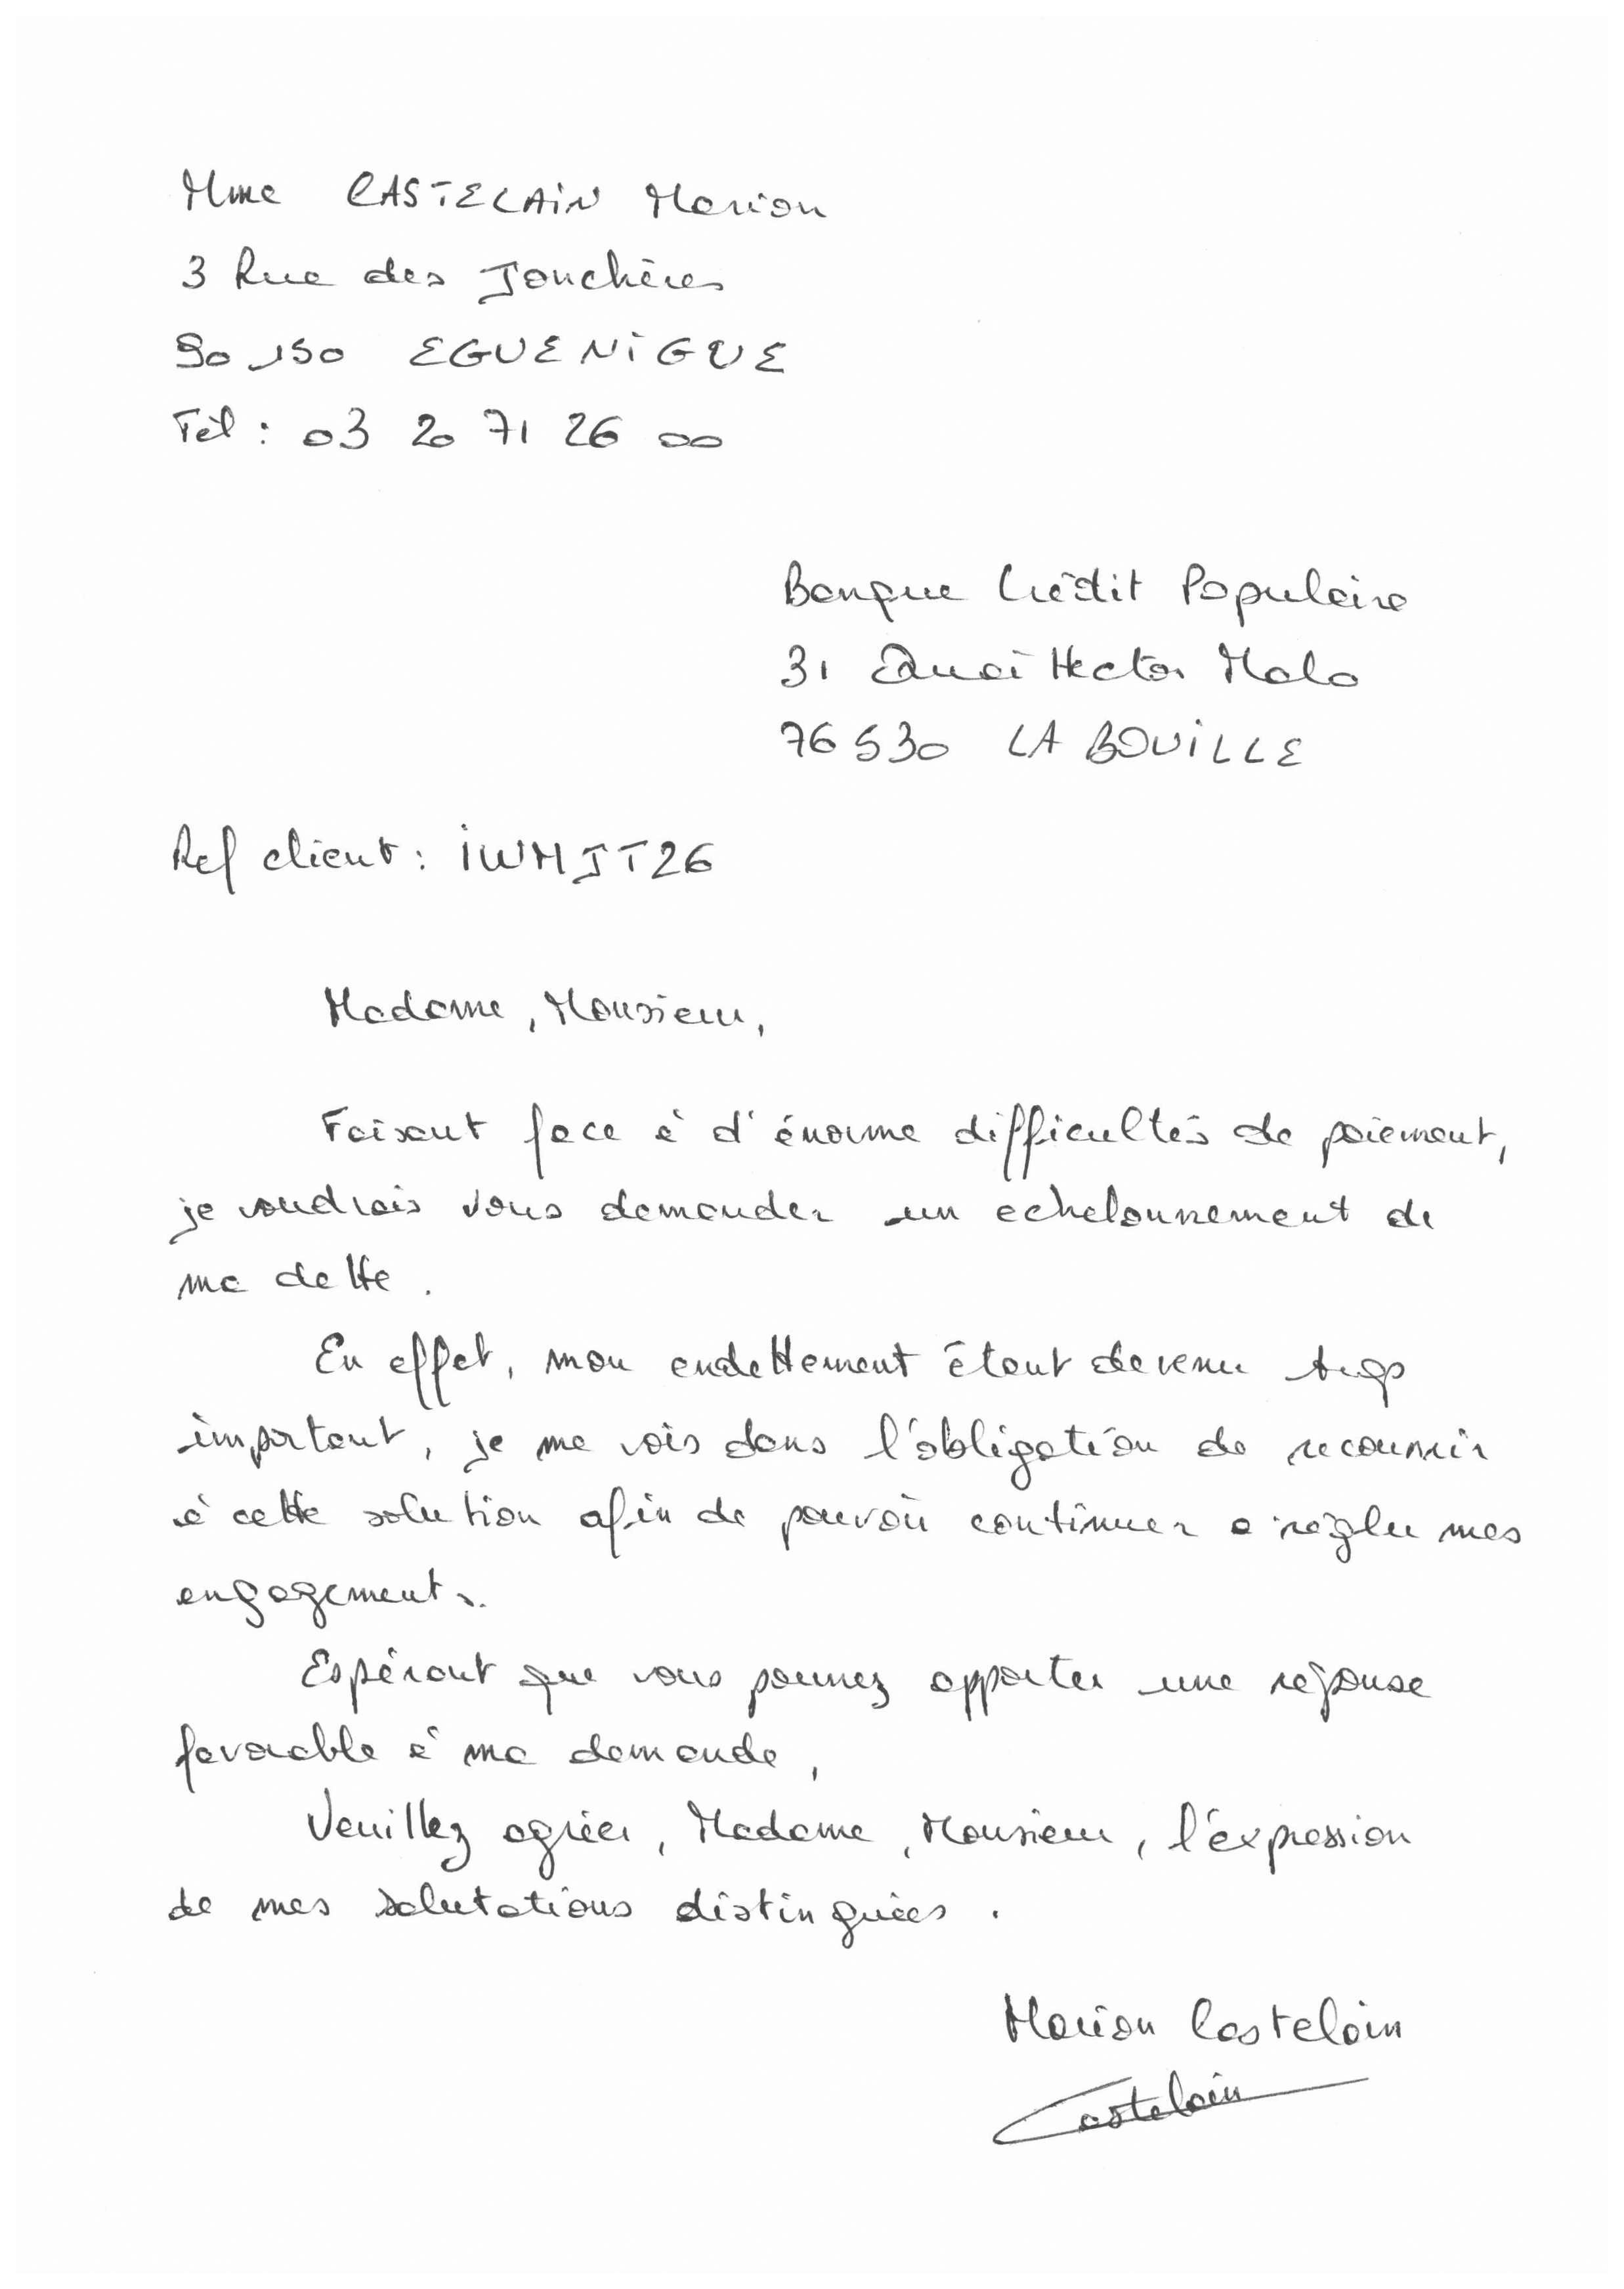 Mme CASTELAIN Marion
3 Rue des Jonchères
90 150 EGUENIGUE
Tèl : 03 20 71 26 00
Banque Crédit Populaire
31 Quai Hector Malo
76 530 LA BOUILLE
Ref client : iWMJT26
Madame, Monsieur,
Faisant face à d'énorme difficultés de paiement,
je voudrais vous demander un echelonnement de
ma dette.
En effet, mon endettement étant devenu trop
important, je me vois dans l'obligation de recourrir
à cette solution afin de pouvoir continuer a régler mes
engagements.
Espérant que vous pourrez apporter une réponse
favorable à ma demande,
Veuillez agréer, Madame, Monsieur, l'expression
de mes salutations distinguées.
Marion Castelain
Castelain